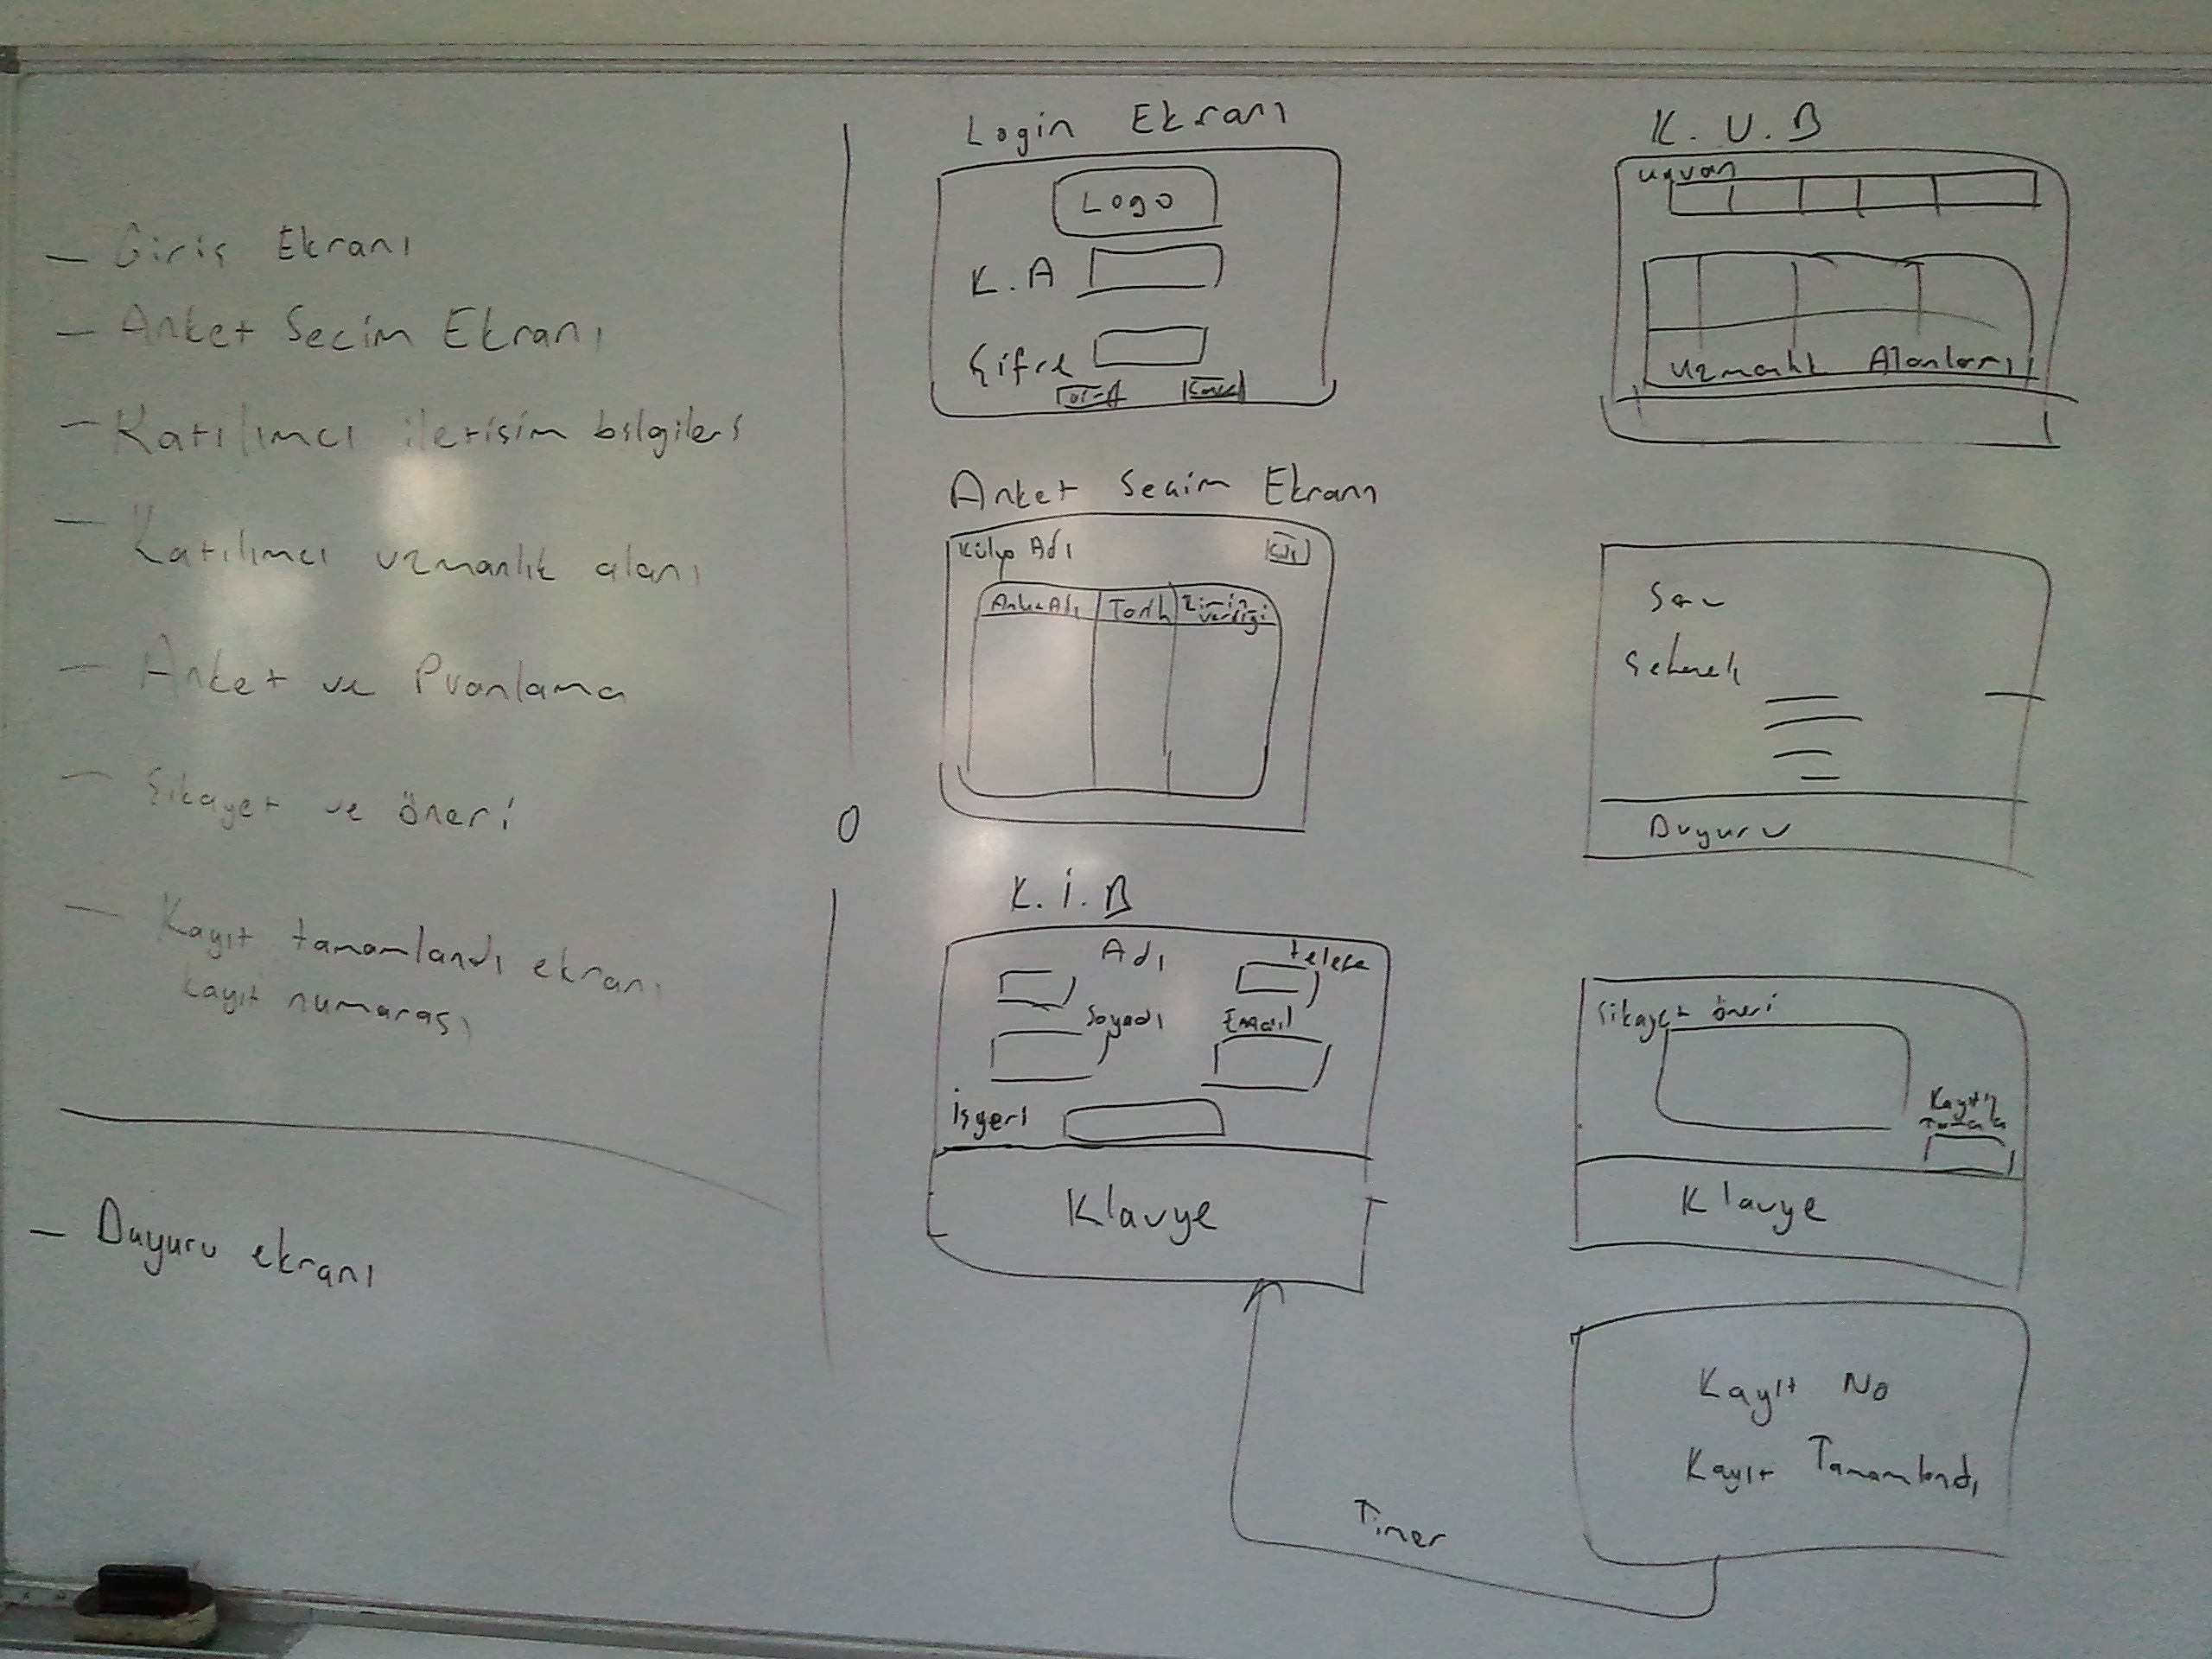 - Giriş Ekranı
- Anket Seçim Ekranı
- Katılımcı iletişim bilgileri
- Katılımcı uzmanlık alanı
- Anket ve Puanlama
- Şikayet ve öneri
- Kayıt tamamlandı ekranı
kayıt numarası
- Duyuru ekranı
Login Ekranı
Logo
K.A
Şifre
Anket Seçim Ekranı
Adı
Anket Adı Tarih Kimin verdiği
K.İ.B
Adı
Soyadı Email
İşyeri
Klavye
Timer
K.U.B
Unvan
Uzmanlık Alanları
Duyuru
Şikayet öneri
Klavye
Kayıt No
Kayıt Tamamlandı